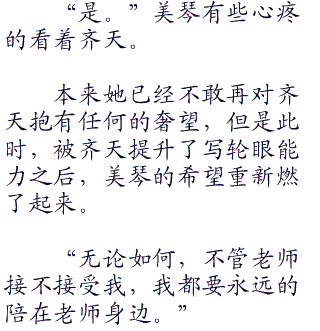 “是。”美琴有些心疼
的看着齐天。
本来她已经不敢再对齐
天抱有任何的奢望，但是此
时，被齐天提升了写轮眼能
力之后，美琴的希望重新燃
了起来。
“无论如何，不管老师
接不接受我，我都要永远的
陪在老师身边。”